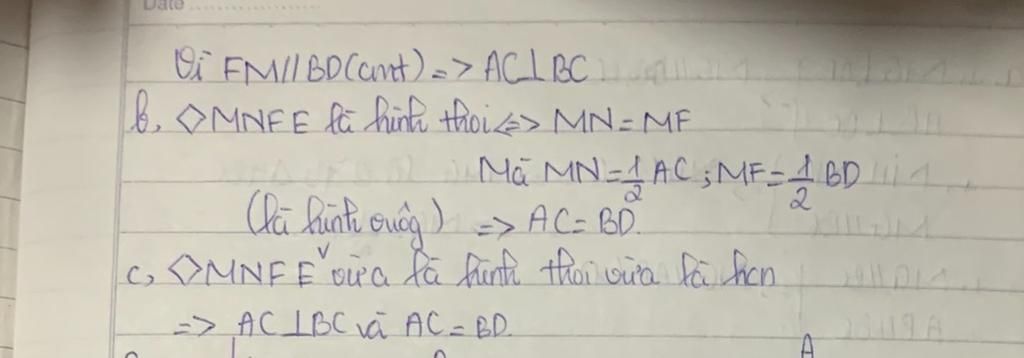 Date
Vì FM//BD(cmt) => AC⊥BC
b, ◇MNFE là hình thoi <=> MN=MF
Mà MN=1/2 AC; MF=1/2 BD
(là hình vuông) => AC=BD.
c, ◇MNFE vừa là hình thoi vừa là hcn
=> AC⊥BC và AC=BD.
A